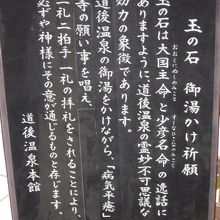 玉の石　御湯かけ祈願
おおくにぬしのみこと　すくなひこなのみこと
玉の石は大国主命と少彦名命の逸話に
ありますように、道後温泉の霊妙不可思議な
効力の象徴であります。
道後温泉の御湯をかけながら、「病気平癒」
等の願い事を唱え、
一礼二拍手一礼の拝礼をされることにより、
必ずや神様にその意が通じるものと存じます。
道後温泉本館